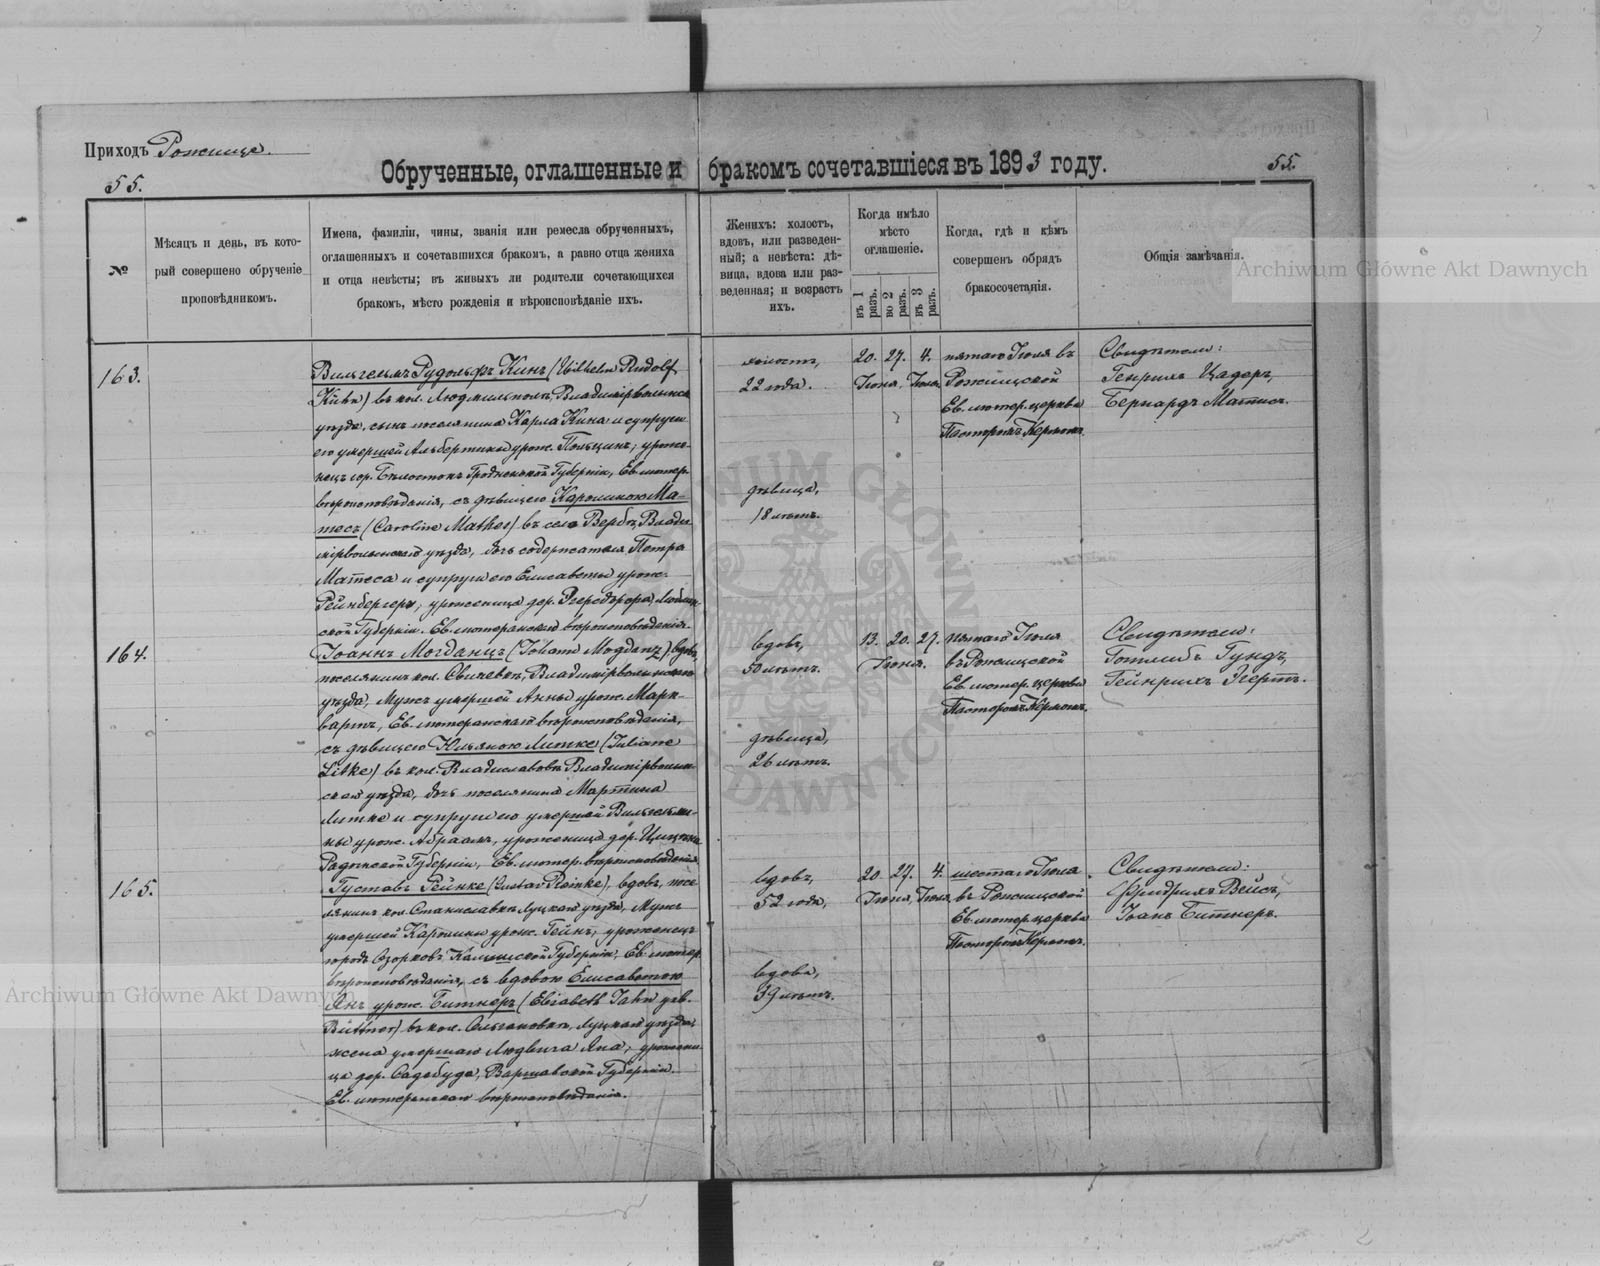 Приходъ Рожище.
55.
Обрученные, оглашенные и бракомъ сочетавшіеся въ 1893 году.
55.
№
Мѣсяцъ и день, въ кото-
рый совершено обрученіе
проповѣдникомъ.
Имена, фамиліи, чины, званія или ремесла обрученныхъ,
оглашенныхъ и сочетавшихся бракомъ, а равно отца жениха
и отца невѣсты; въ живыхъ ли родители сочетающихся
бракомъ, мѣсто рожденія и вѣроисповѣданіе ихъ.
Женихъ: холостъ,
вдовъ, или разведен-
ный; а невѣста: дѣ-
вица, вдова или раз-
веденная; и возрастъ
ихъ.
Когда имѣло
мѣсто
оглашеніе.
въ 1 разъ.
во 2 разъ.
въ 3 разъ.
Когда, гдѣ и кѣмъ
совершенъ обрядъ
бракосочетанія.
Общія замѣчанія.
163.
Вильгельмъ Рудольфъ Кинъ (Wilhelm Rudolf
Kühn) въ кол. Людмилполь, Владимірволынск.
уѣзда, сынъ поселянина Карла Кина и супруги
его умершей Альбертины урож. Польцинъ; уроже-
нецъ гор. Бѣлостокъ Гродненской Губерніи, Ев. лютер.
вѣроисповѣданія, съ дѣвицею Каролиною Ма-
тесъ (Caroline Mathes) въ селѣ Вербѣ, Влади-
мірволынскаго уѣзда, дочь содержателя Петра
Матеса и супруги его Елисаветы урож.
Рейнбергеръ, уроженица дер. Люблин-
ской Губерніи. Ев. лютеранскаго вѣроисповѣданія.
холостъ,
22 года.
дѣвица,
18 лѣтъ.
20. 27. 4.
Іюня, Іюля,
пятаго Іюля въ
Рожищской
Ев. лютер. церкви
Пасторомъ Кермомъ.
Свидѣтели:
Генрихъ Цадеръ,
Бернардъ Матисъ.
164.
Іоаннъ Могданцъ (Johann Mogdanz), вдовъ,
поселянинъ кол. Свичевка, Владимірволынскаго
уѣзда, Мужъ умершей Анны урож. Марк-
вартъ, Ев. лютеранскаго вѣроисповѣданія,
съ дѣвицею Юльяною Литке (Juliane
Litke) въ кол. Владиславовкѣ Владимірволын-
скаго уѣзда, дочь поселянина Мартина
Литке и супруги его умершей Вильгельми-
ны урож. Абраамъ, уроженица дер.
Радомской Губерніи, Ев. лютер. вѣроисповѣданія.
вдовъ,
50 лѣтъ.
дѣвица,
26 лѣтъ.
13. 20. 27.
Іюня.
пятаго Іюля
въ Рожищской
Ев. лютер. церкви
Пасторомъ Кермомъ.
Свидѣтели:
Готлибъ Гундъ,
Гейнрихъ Эгертъ.
165.
Густавъ Рейнке (Gustav Reinke), вдовъ, посе-
лянинъ кол. Станиславка Луцкаго уѣзда, Мужъ
умершей Каролины урож. Гейнъ; уроженецъ
города Озорковъ Калишской Губерніи; Ев. лютер.
вѣроисповѣданія, съ вдовою Елисаветою
Янъ урож. Битнеръ (Elisabeth Jahn geb.
Büttner) въ кол. Ольгановкѣ, Луцкаго уѣзда,
жена умершаго Людвига Яна; урожени-
ца дер. Садебуда, Варшавской Губерніи.
Ев. лютеранскаго вѣроисповѣданія.
вдовъ,
52 года,
вдова,
39 лѣтъ.
20. 27. 4.
Іюня, Іюля,
шестаго Іюля
въ Рожищской
Ев. лютер. церкви
Пасторомъ Кермомъ.
Свидѣтели:
Фридрихъ Вейсъ,
Іоанъ Битнеръ.
Archiwum Główne Akt Dawnych
Archiwum Główne Akt Dawnych